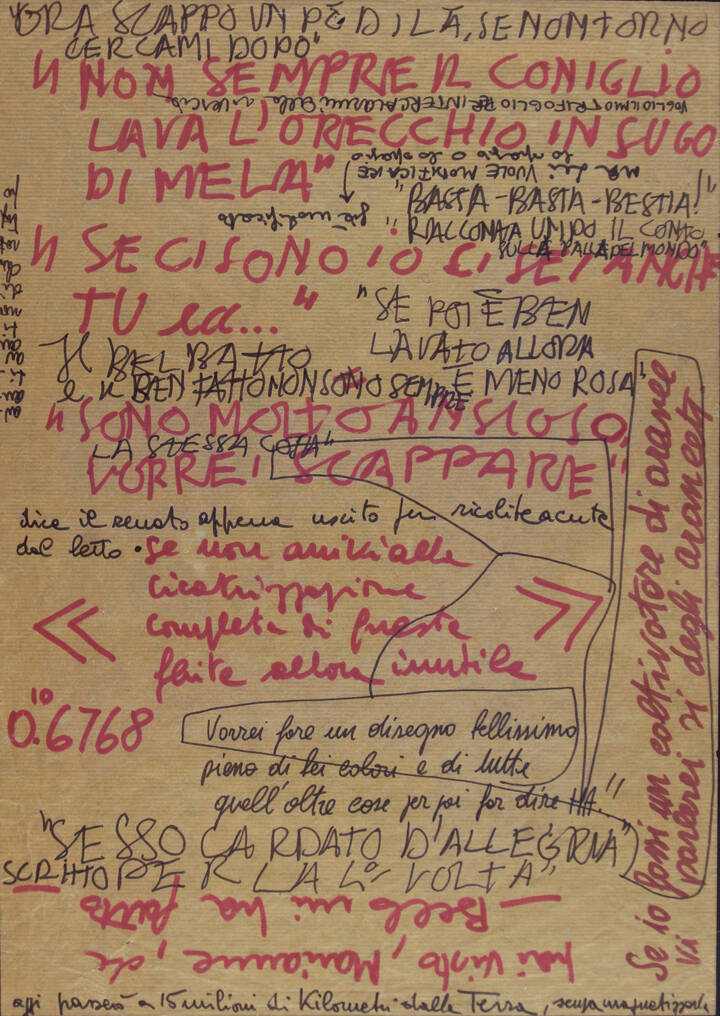 ORA SCAPPO UN PÒ DI LÀ, SE NON TORNO
CERCAMI DOPO"
"NON SEMPRE IL CONIGLIO
VOGLIO IL MIO TRIFOGLIO PER INTERCALARMI
LAVA L'ORECCHIO IN SUGO
DI MELA"
ma lei VUOLE MODIFICARE
lo spazio o lo spazio
già modificato
"BASTA-BASTA-BESTIA!"
"RIACCONTA UN PO IL CONTO
SULLA PALLA DEL MONDO"
"SE CI SONO IO CI SEI ANCHE
TU ea..."
"SE POI È BEN
LAVATO ALLORA
È MENO ROSA"
Il BEL BATTO
e il BEN FATTO NON SONO SEMPRE
LA STESSA COSA"
"SONO MOLTO ANSIOSO,
VORREI SCAPPARE"
dice il renato appena uscito per
dal letto.
se non arrivi alla
cicatrizzazione
completa di queste
ferite allora inutile
<< >>
10
0.6768
Vorrei fare un disegno bellissimo
pieno di bei colori e di tutte
quell'altre cose per poi far dire HA."
"SESSO CARDATO D'ALLEGRIA"
SCRITTO PER LA 1° VOLTA"
hai visto, Marianne, che
— Bello mi ha fatto
oggi passerà a 15 milioni di Kilometri dalla Terra, senza
Se io fossi un coltivatore di arance
vi parlerei di degli aranceti.